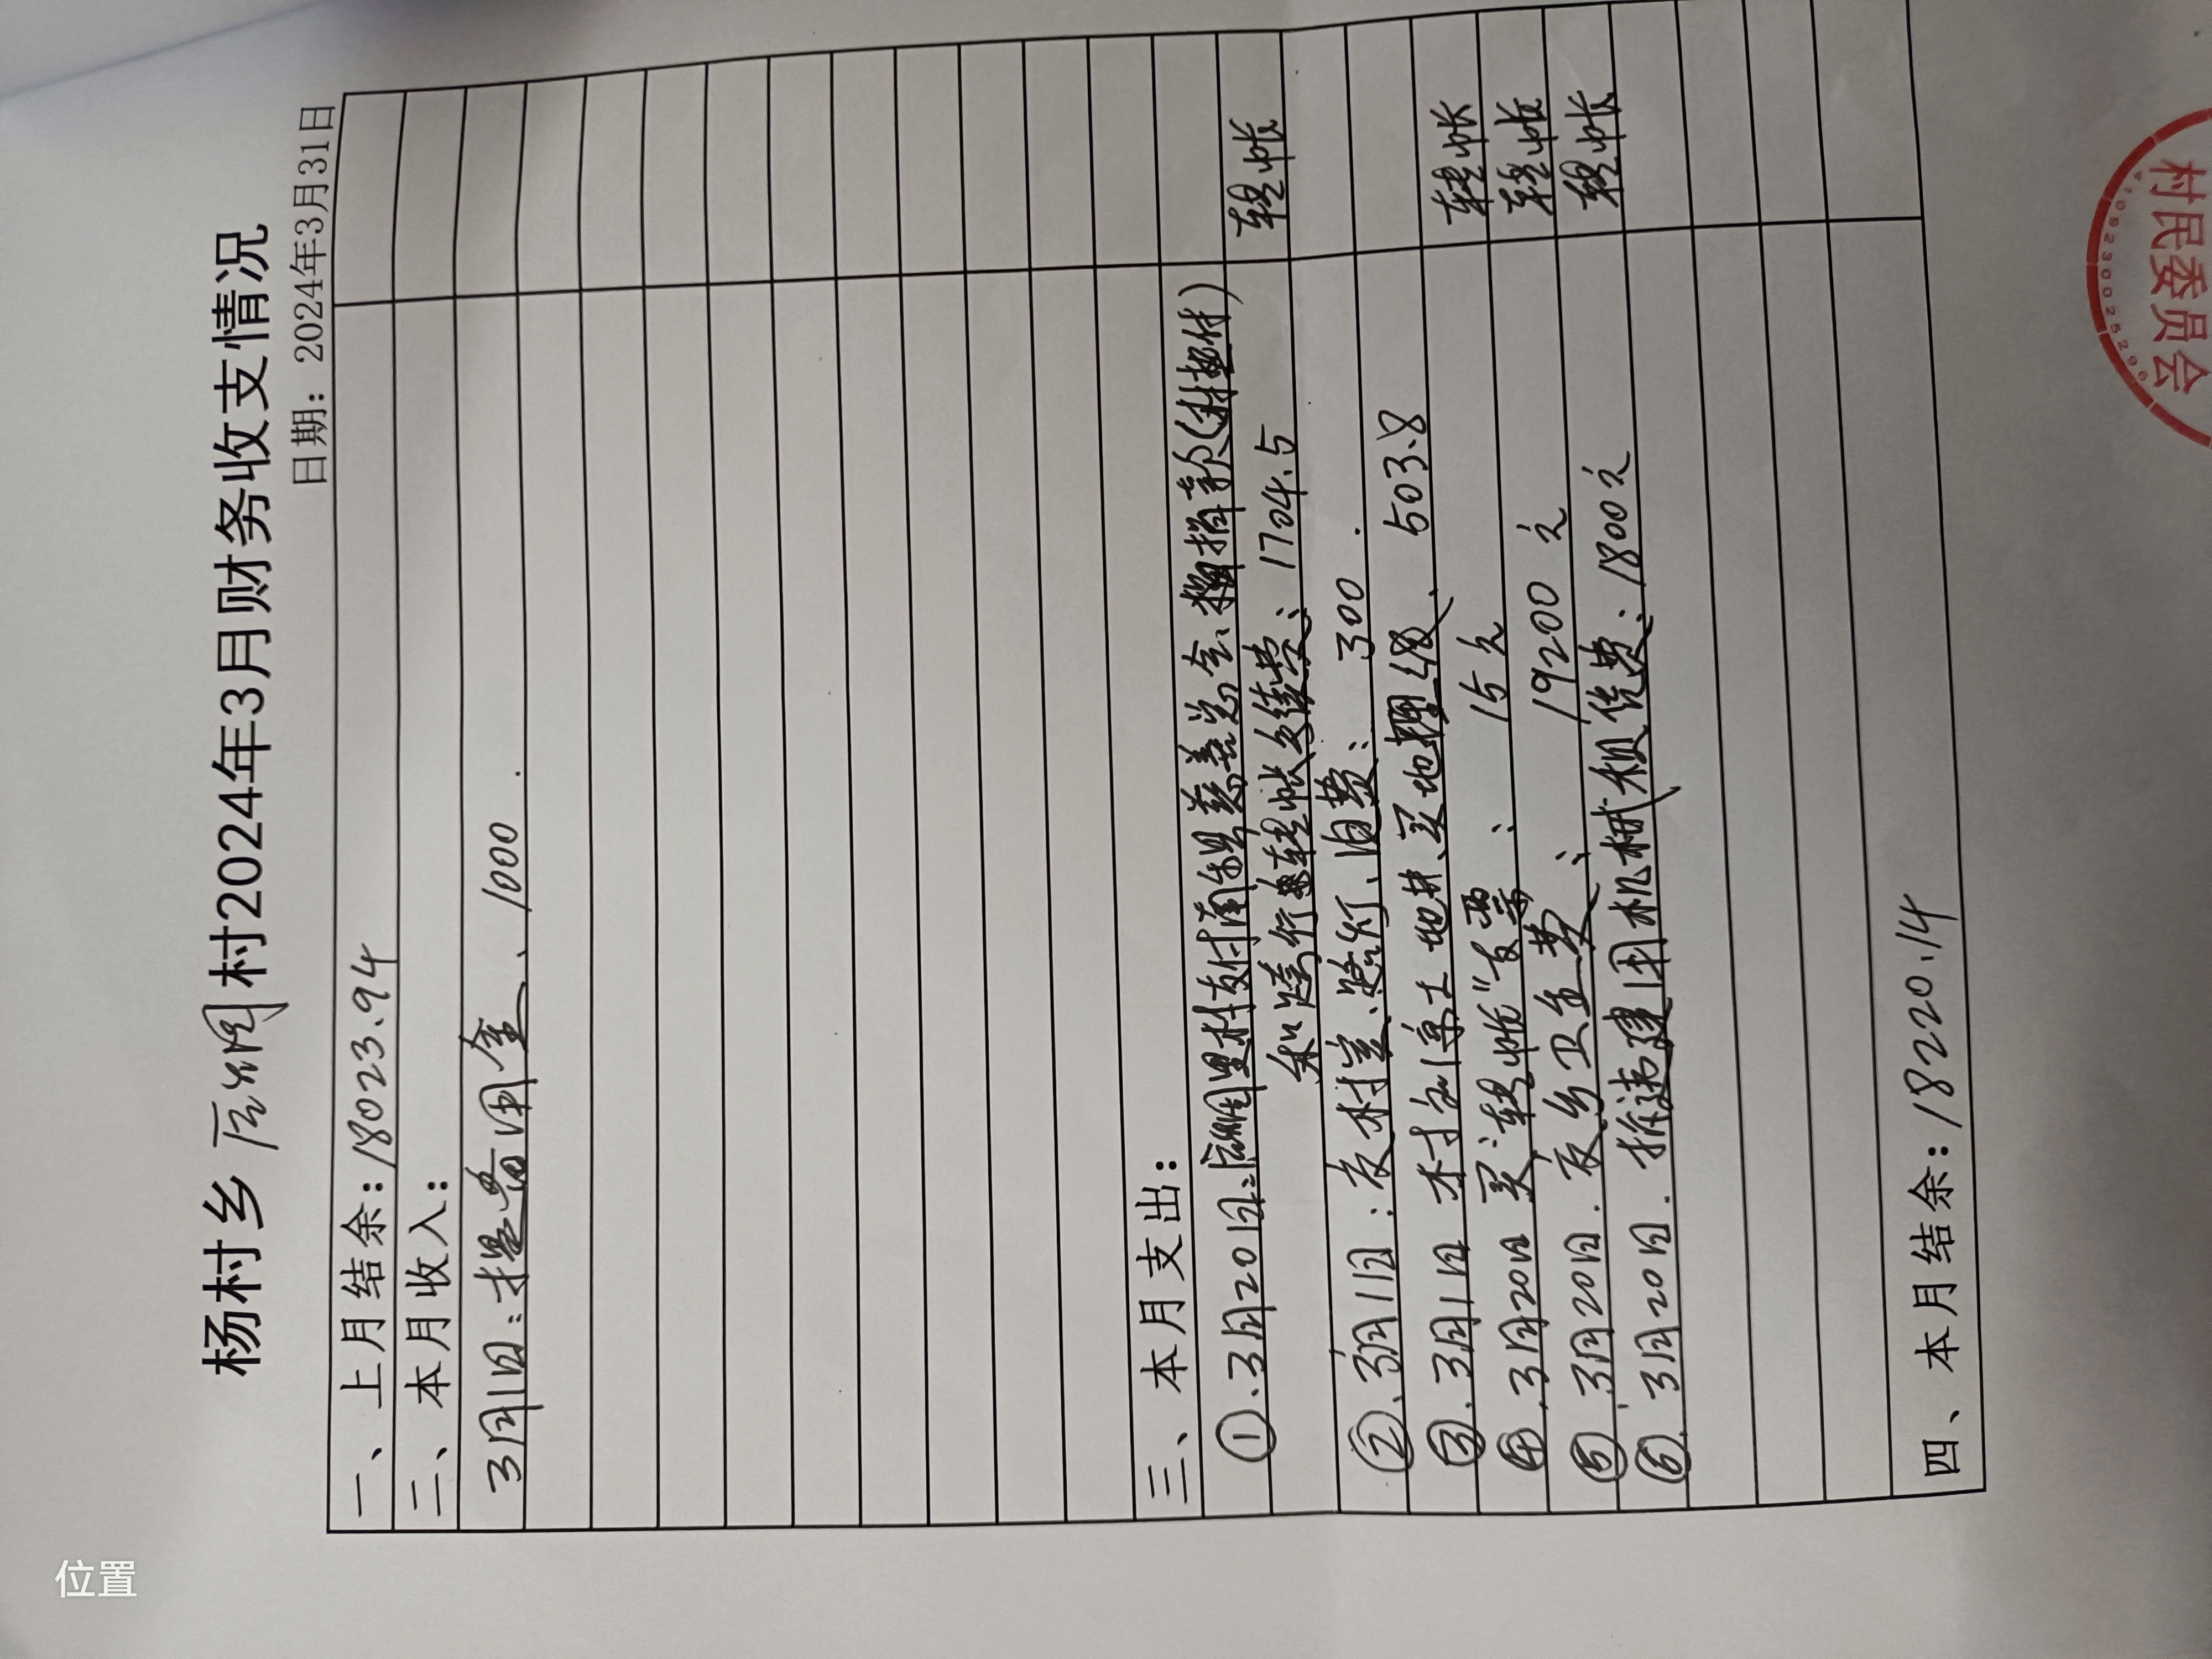 位置
杨村乡后烟村2024年3月财务收支情况
日期：2024年3月31日
一、上月结余：18023.94
二、本月收入：
3月1日：提备用金、1000.
三、本月支出：
①、3月20日：里村支付南乐县慈善总会、捐款(村垫付)
和跨行转帐手续费：1704.5 转帐
②、3月1日：交村室、路灯、电费：300.
③、3月1日 村 地井、买地埋线、503.8
④、3月20日 买"转帐"支票：15元 转帐
⑤、3月20日.交乡卫生费：19200元 转帐
⑥、3月20日.拆违建用机械租赁费：1800元 转帐
四、本月结余：18220.14
村民委员会